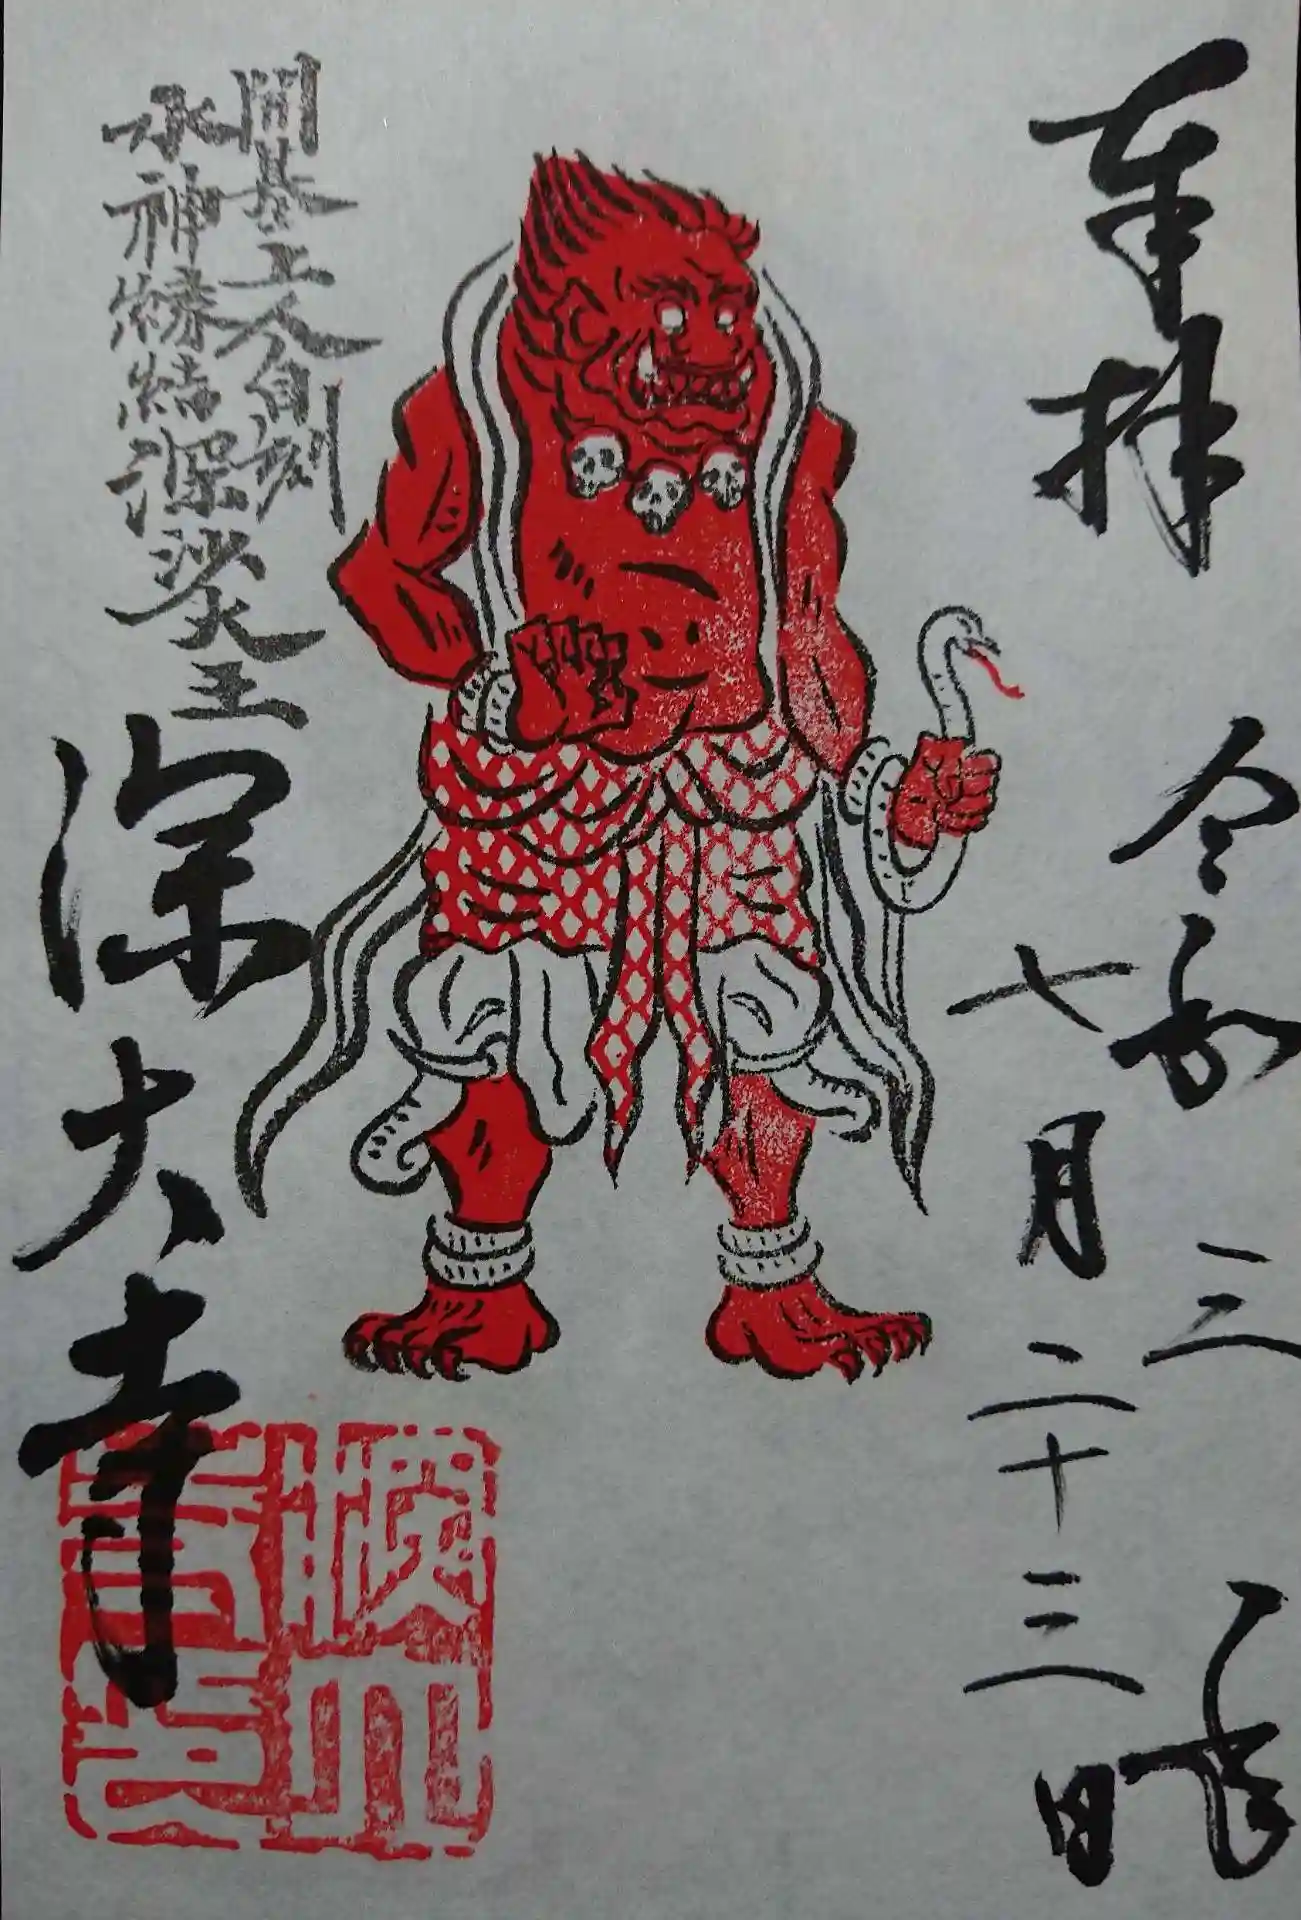 奉拝
令和三年
七月二十三日
開基上人自刻
水神縁結深沙大王
深大寺